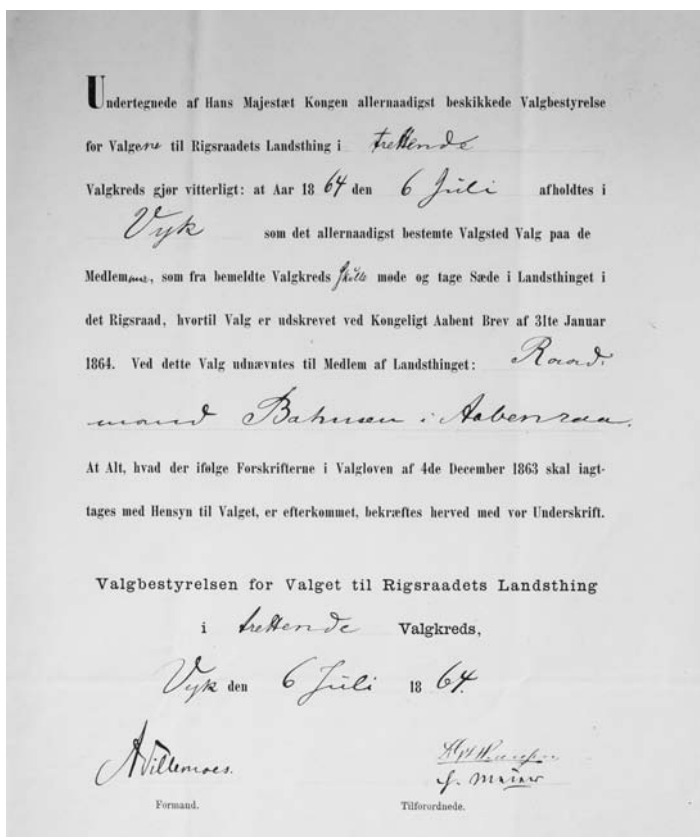 Undertegnede af Hans Majestæt Kongen allernaadigst beskikkede Valgbestyrelse
for Valgene til Rigsraadets Landsthing i trettende
Valgkreds gjør vitterligt: at Aar 1864 den 6 Juli afholdtes i
Vyk som det allernaadigst bestemte Valgsted Valg paa de
Medlemmer, som fra bemeldte Valgkreds skulle møde og tage Sæde i Landsthinget i
det Rigsraad, hvortil Valg er udskrevet ved Kongeligt Aabent Brev af 31te Januar
1864. Ved dette Valg udnævntes til Medlem af Landsthinget: Raad-
mand Bahnsen i Aabenraa.
At Alt, hvad der ifølge Forskrifterne i Valgloven af 4de December 1863 skal iagt-
tages med Hensyn til Valget, er efterkommet, bekræftes herved med vor Underskrift.
Valgbestyrelsen for Valget til Rigsraadets Landsthing
i trettende Valgkreds,
Vyk den 6 Juli 1864.
A Villemoes.
Formand.
Tilforordnede.